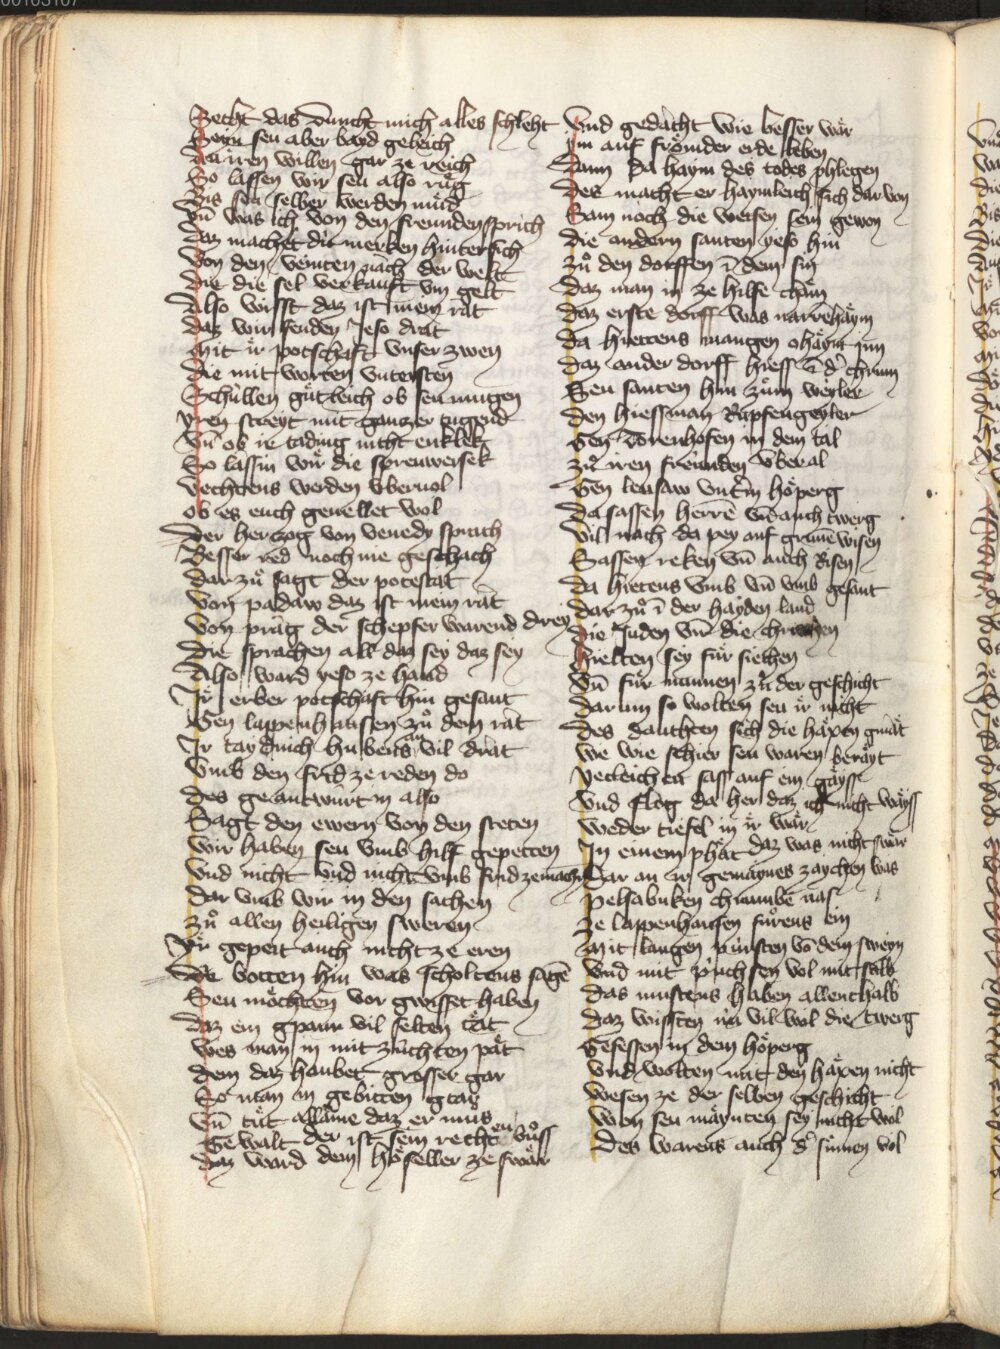 Secht das dunckt mich alles schleht
Seyn seu aber bayd geleich
Wa iren willen gar ze reich
So lassen wir seu also ruͦg
Bis seu selber werden muͤd
Vn̄ was ich von den freunden sprich
Daz machet die merken hintersich
Von den veinten nach der welt
Die die sel verkauft vm gelt
Also wisst daz ist mein rat
Daz wir senden ieso drat
Mit ir potschaft vnser zwen
Die mit worten vntersten
Schuͤllen guͤtleich ob seu mugen
Yren streyt mit ganczer tugend
Vn̄ ob ir tading nicht enklek
So lassin wir die sprenwersek
Vechtens werden vberuol
Ob es euch geuellet wol
Der herczog von venedy sprach
Besser red noch nie geschach
Dar zuͦ sagt der potestat
Von padaw daz ist mein rat
Von prag der schepfer warend drey
Die sprachen all daz sey daz sey
Also ward yeso ze hand
Ir erber potschaft hin gesant
Gen lappenhausen zuͦ dem rat
Ir tayding hubens an vil drat
Vmb den frid ze reden do
Des geantwuͤrt in also
Sagt den ewern von den steten
Wir haben seu vmb hilf gepetten
Vnd nicht vnd nicht vmb frid zemachn
Dar vmb wir in den sachen
Zuͦ allen heiligen sweren
Ir gepett auch nicht ze eren
Die botten hin was scholtens sagē
Seu moͤchten vor gwisset haben
Daz ein gpaur vil selten taͤt
Wes man in mit zuͤchten paͤt
Dem daz haubet grosser gar
So man in gebitten gtar
Vn̄ tuͤt allaine daz er muͦs
Gewalt der ist sein rechteu buͦss
Daz ward dem hoͤseller ze swaͤr
Vnd gedacht wie besser waͤr
Im auf froͤmder erde leben
Dann da haym des todes phlegen
Des macht er haymleich sich dar von
Sam noch die weisen sein gewon
Die andern santen yeso hin
Zuͦ den dorffen ī dem sin
Daz man in ze hilfe chaͤm
Daz erste dorff was narrehaͤym
Da hiettens mangen ohaͤym inn
Daz ander dorff hiess
Seu santen hin zuͦm weyler
Den hiessman Rupfengeyler
Gen Torenhofen in dem tal
Zuͦ iren freunden vberal
Gen leusaw vnt'm hoͤperg
Da sassen herrē vn̄ auch twerg
Vil nach da pey auf gruͤnē wisen
Sassen reken vn̄ auch Risen
Da hietens vmb vn̄ vmb gesant
Dar zuͦ ī der hayden land
Die Juden vn̄ die christen
Hielten sey fuͤr siechen
Vn̄ fuͤr mannen zuͦ der geschicht
Dar um so wolten seu ir nicht
Des dauchten sich die haͤxen gmaͤt
We wie schier seu waren beraͤyt
Yecleicheu sass auf ein gaͤyss
Vnd flog da her daz ich nicht wayss
Weder tiefel in ir waͤr
In einem phaͤt daz was nicht swaͤr
Dar an ir gemaynes zaychen was
Pelsabuken chrumbe nas
Ze lappenhausen fuͦrens ein
Mit langen puͤrsten vō dem sweyn
Vnd mit puͤchsen vol mit salb
Das mustens haben allenthalb
Daz wissten nu vil wol die twerg
Gesessen in dem hoͤperg
Vnd wolten mit den haͤxen nicht
Wesen ze der selben geschicht
Won seu maynten sey nicht wol
Des warens auch d' sinnen vol